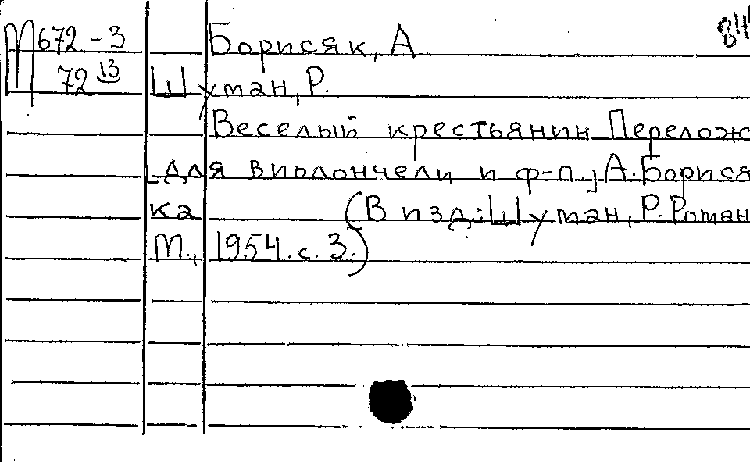 М 672-3 Борисяк, А 84
72 13 Шуман, Р.
Веселый крестьянин Перелож
[для виолончели и ф-п.] А. Борися
ка (В изд: Шуман, Р. Роман
М., 1954. с. 3.)